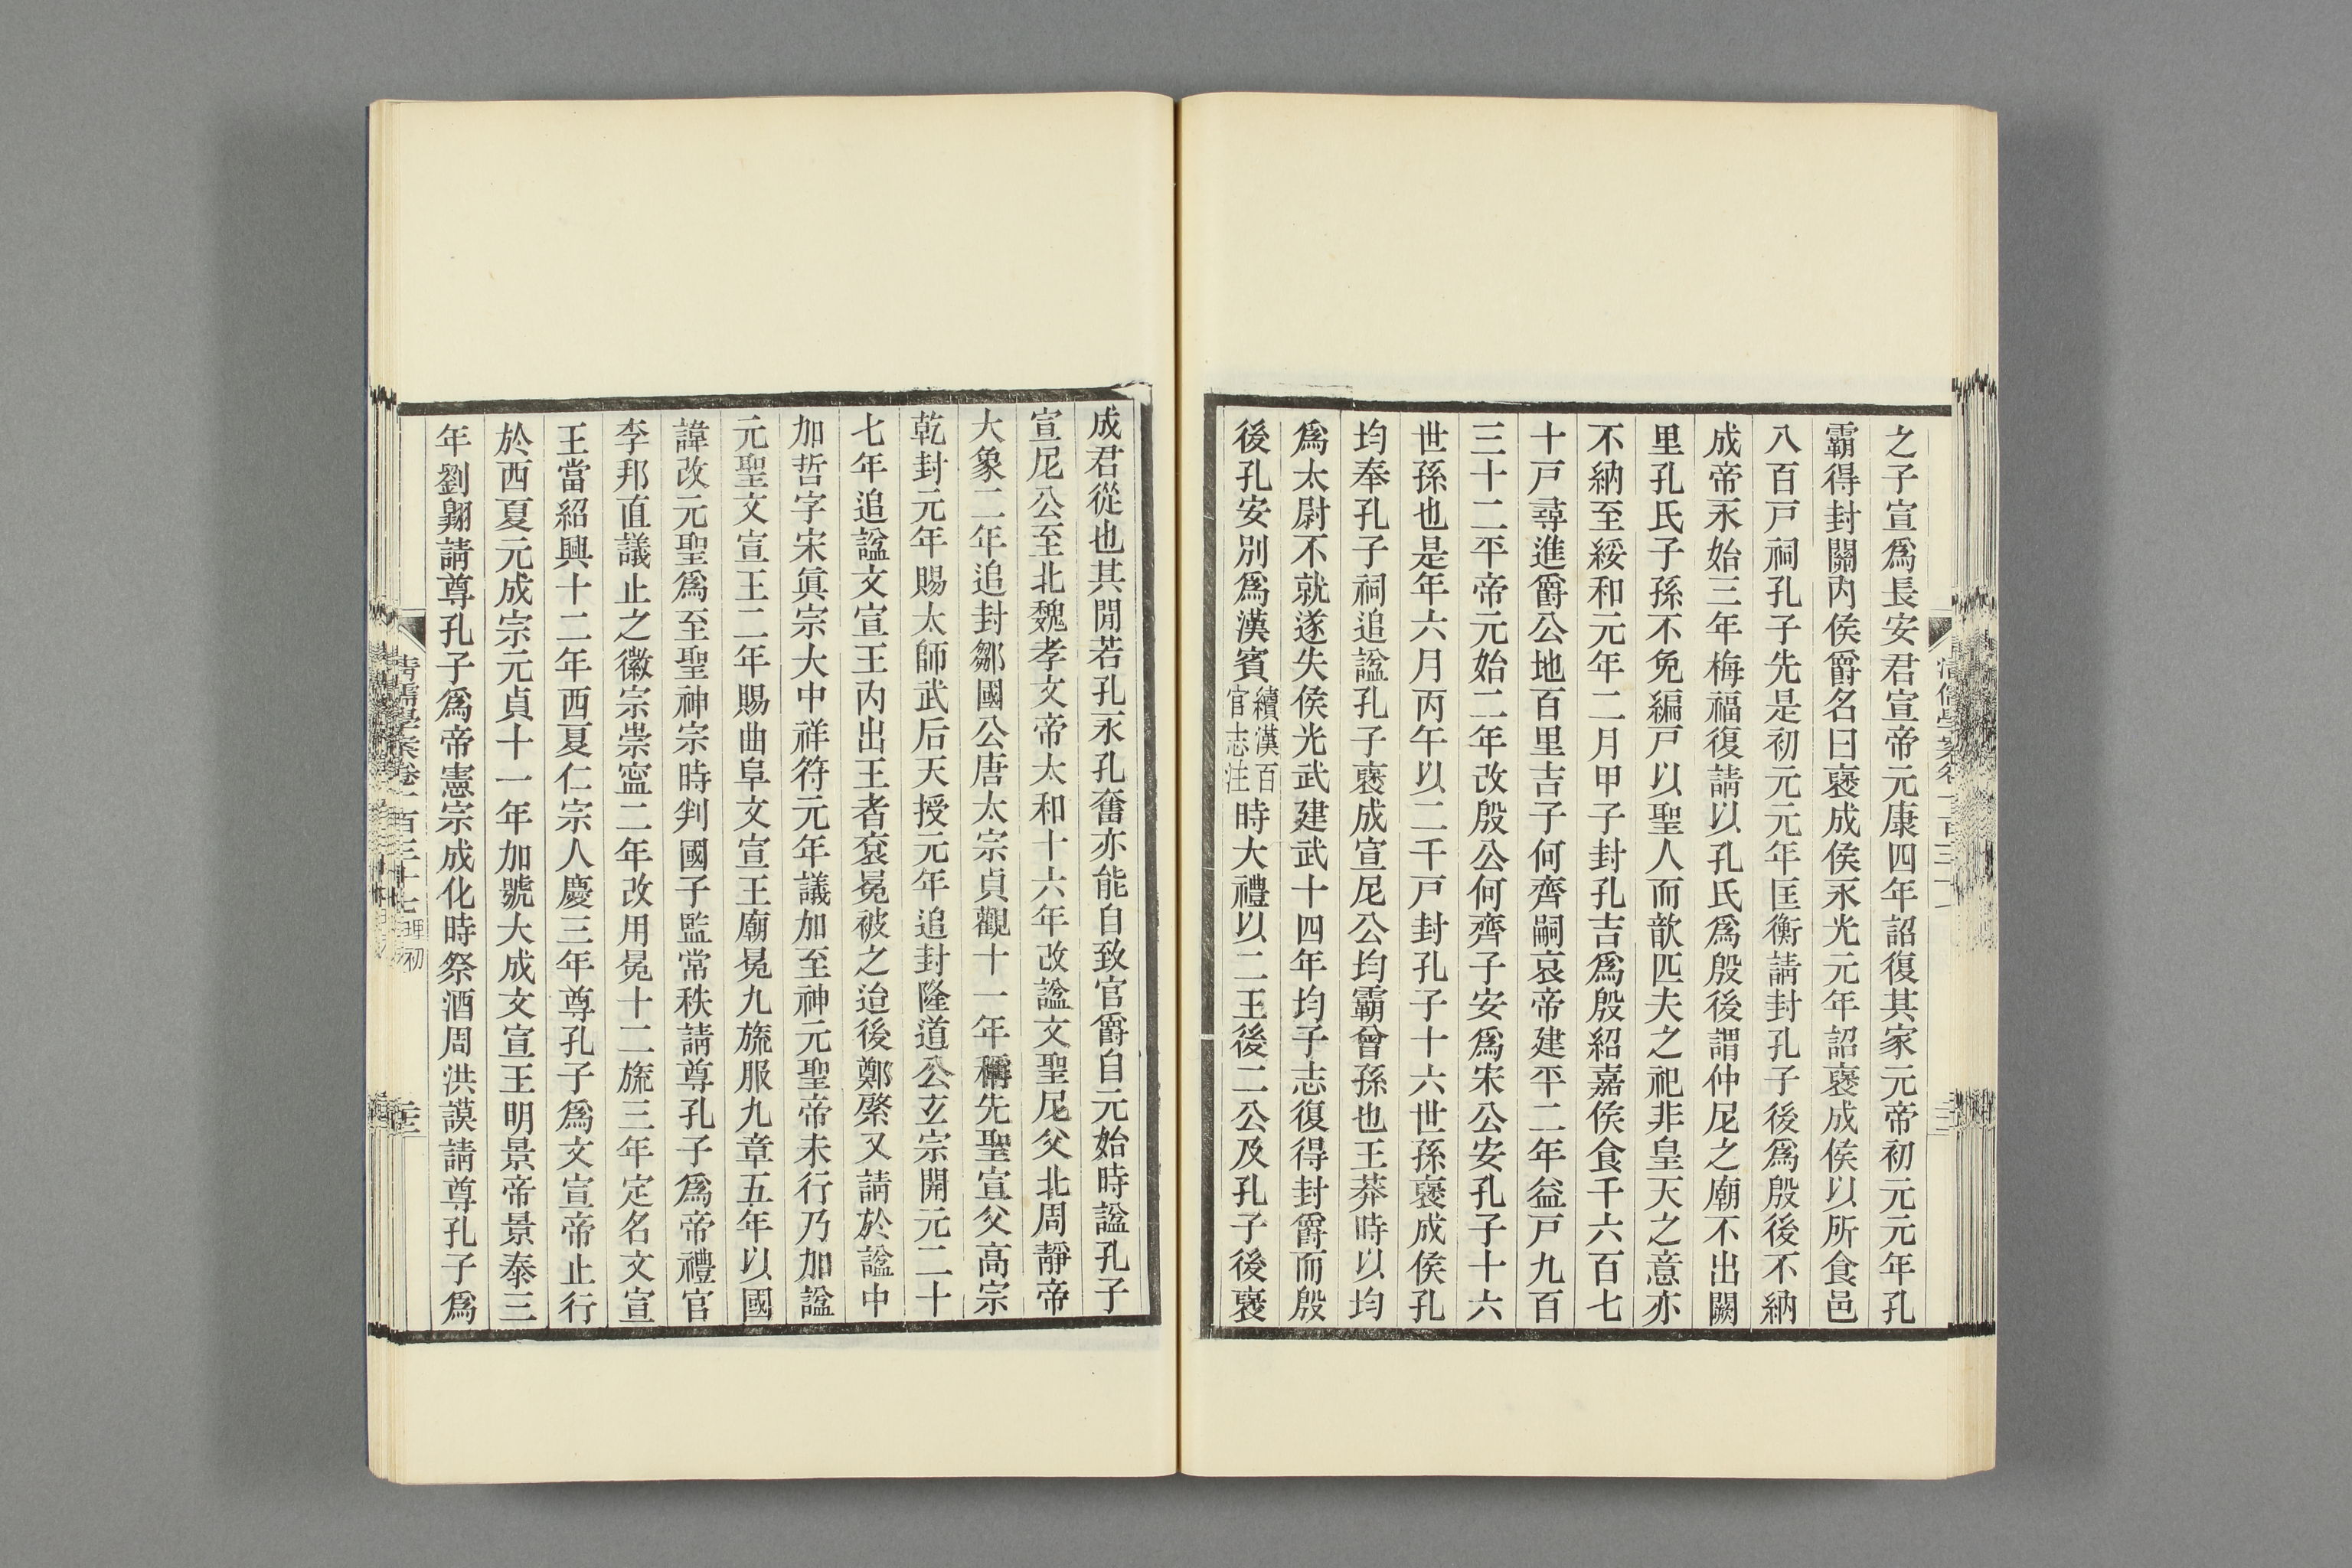 之子宣爲長安君宣帝元康四年詔復其家元帝初元元年孔
霸得封關內侯爵名曰褒成侯永光元年詔褒成侯以所食邑
八百戸祠孔子先是初元元年匡衡請封孔子後爲殷後不納
成帝永始三年梅福復請以孔氏爲殷後謂仲尼之廟不出闕
里孔氏子孫不免編戸以聖人而歆匹夫之祀非皇天之意亦
不納至綏和元年二月甲子封孔吉爲殷紹嘉侯食千六百七
十戸尋進爵公地百里吉子何齊嗣哀帝建平二年益戸九百
三十二平帝元始二年改殷公何齊子安爲宋公安孔子十六
世孫也是年六月丙午以二千戸封孔子十六世孫褒成侯孔
均奉孔子祠追諡孔子褒成宣尼公均霸曾孫也王莽時以均
爲太尉不就遂失侯光武建武十四年均子志復得封爵而殷
後孔安別爲漢賓續漢百官志注時大禮以二王後二公及孔子後褒
成君從也其閒若孔永孔奮亦能自致官爵自元始時諡孔子
宣尼公至北魏孝文帝太和十六年改諡文聖尼父北周靜帝
大象二年追封鄒國公唐太宗貞觀十一年稱先聖宣父高宗
乾封元年賜太師武后天授元年追封隆道公玄宗開元二十
七年追諡文宣王內出王者袞冕被之迨後鄭綮又請於諡中
加哲字宋眞宗大中祥符元年議加至神元聖帝未行乃加諡
元聖文宣王二年賜曲阜文宣王廟冕九旒服九章五年以國
諱改元聖爲至聖神宗時判國子監常秩請尊孔子爲帝禮官
李邦直議止之徽宗崇寍二年改用冕十二旒三年定名文宣
王當紹興十二年西夏仁宗人慶三年尊孔子爲文宣帝止行
於西夏元成宗元貞十一年加號大成文宣王明景帝景泰三
年劉翺請尊孔子爲帝憲宗成化時祭酒周洪謨請尊孔子爲
清儒學案卷一百三十七 理初